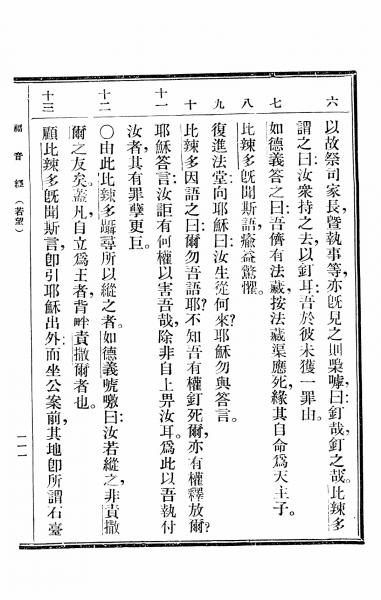 六 以故祭司家長曁執事等亦旣見之則槩嘑曰釘哉釘之哉比辣多
謂之曰汝衆持之去以釘耳吾於彼未獲一罪由。
七 如德義答之曰吾儕有法藏按法藏渠應死緣其自命爲天主子。
八 比辣多旣聞斯語、瘉益驚懼。
九 復進法堂向耶穌曰汝生從何來?耶穌勿與答言。
十 比辣多因語之曰爾勿吾語耶?不知吾有權釘死爾亦有權釋放爾?
十一 耶穌答言汝詎有何權以害吾哉除非自上畀汝耳爲此以吾執付
汝者、其有罪孽更巨。
十二 〇由此比辣多躊尋所以縱之者。如德義號噭曰汝若縱之非責撒
爾之友矣蓋凡自立爲王者背畔責撒爾者也。
十三 顧比辣多旣聞斯言卽引耶穌出外而坐公案前其地卽所謂石臺
福音經(若望)
一一一